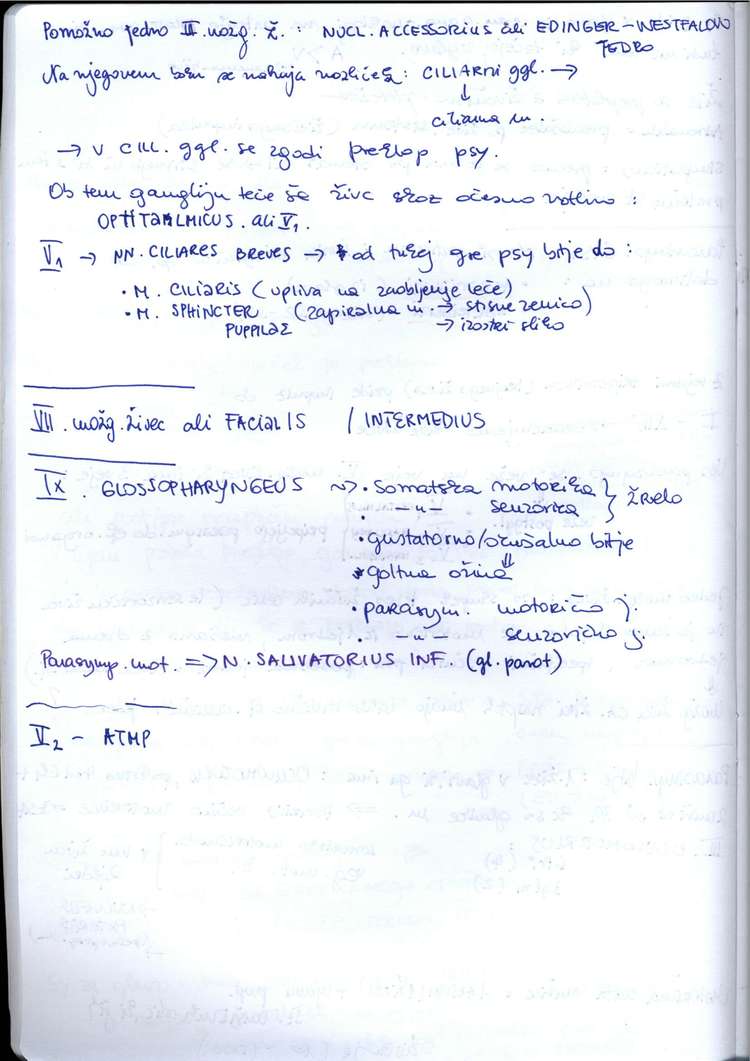 Pomožno jedro III. možg. ž. : NUCL. ACCESSORIUS ali EDINGER-WESTFALOVO
JEDRO
Na njegovem boku se nahaja mozliček: CILIARNI ggl. →
↓
ciliarna m.
→ V CILL. ggl. se zgodi preklop psy.
Ob tem gangliju teče še živc skoz očesno votlino :
OPHTHALMICUS. ali V1.
V1 → NN. CILIARES BREVES → od tukej gre psy bitje do :
• M. CILIARIS (upliva na zaobljenje leče)
• M. SPHINCTER (zapiralna m. → stisne zenico)
PUPPILAE → izostri sliko
VII. možg. živec ali FACIALIS / INTERMEDIUS
IX. GLOSSOPHARYNGEUS ~> • somatska motorika } ŽRELO
• -"- senzorika
• gustatorno/okušalno bitje
⇓
* goltna ožina
• parasym. motorično j.
• -"- senzorično j.
Parasymp. mot. => N. SALIVATORIUS INF. (gl. parot)
V2 - ATMP